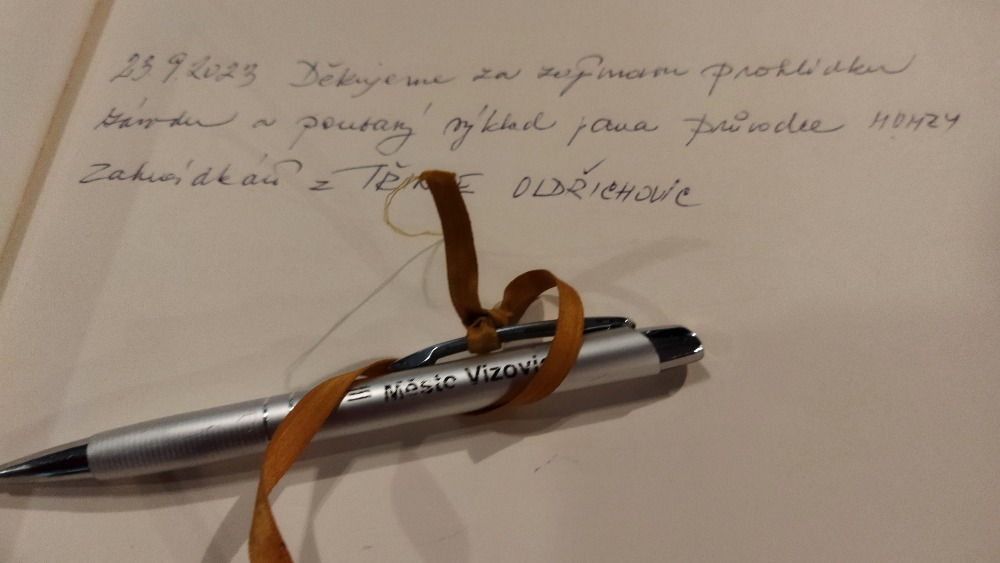 23.9.2023 Děkujeme za zajímavou prohlídku
závodu a poutavý výklad pana průvodce HONZY
Zahrádkáři z TŘINCE OLDŘICHOVIC
Město Vizovic